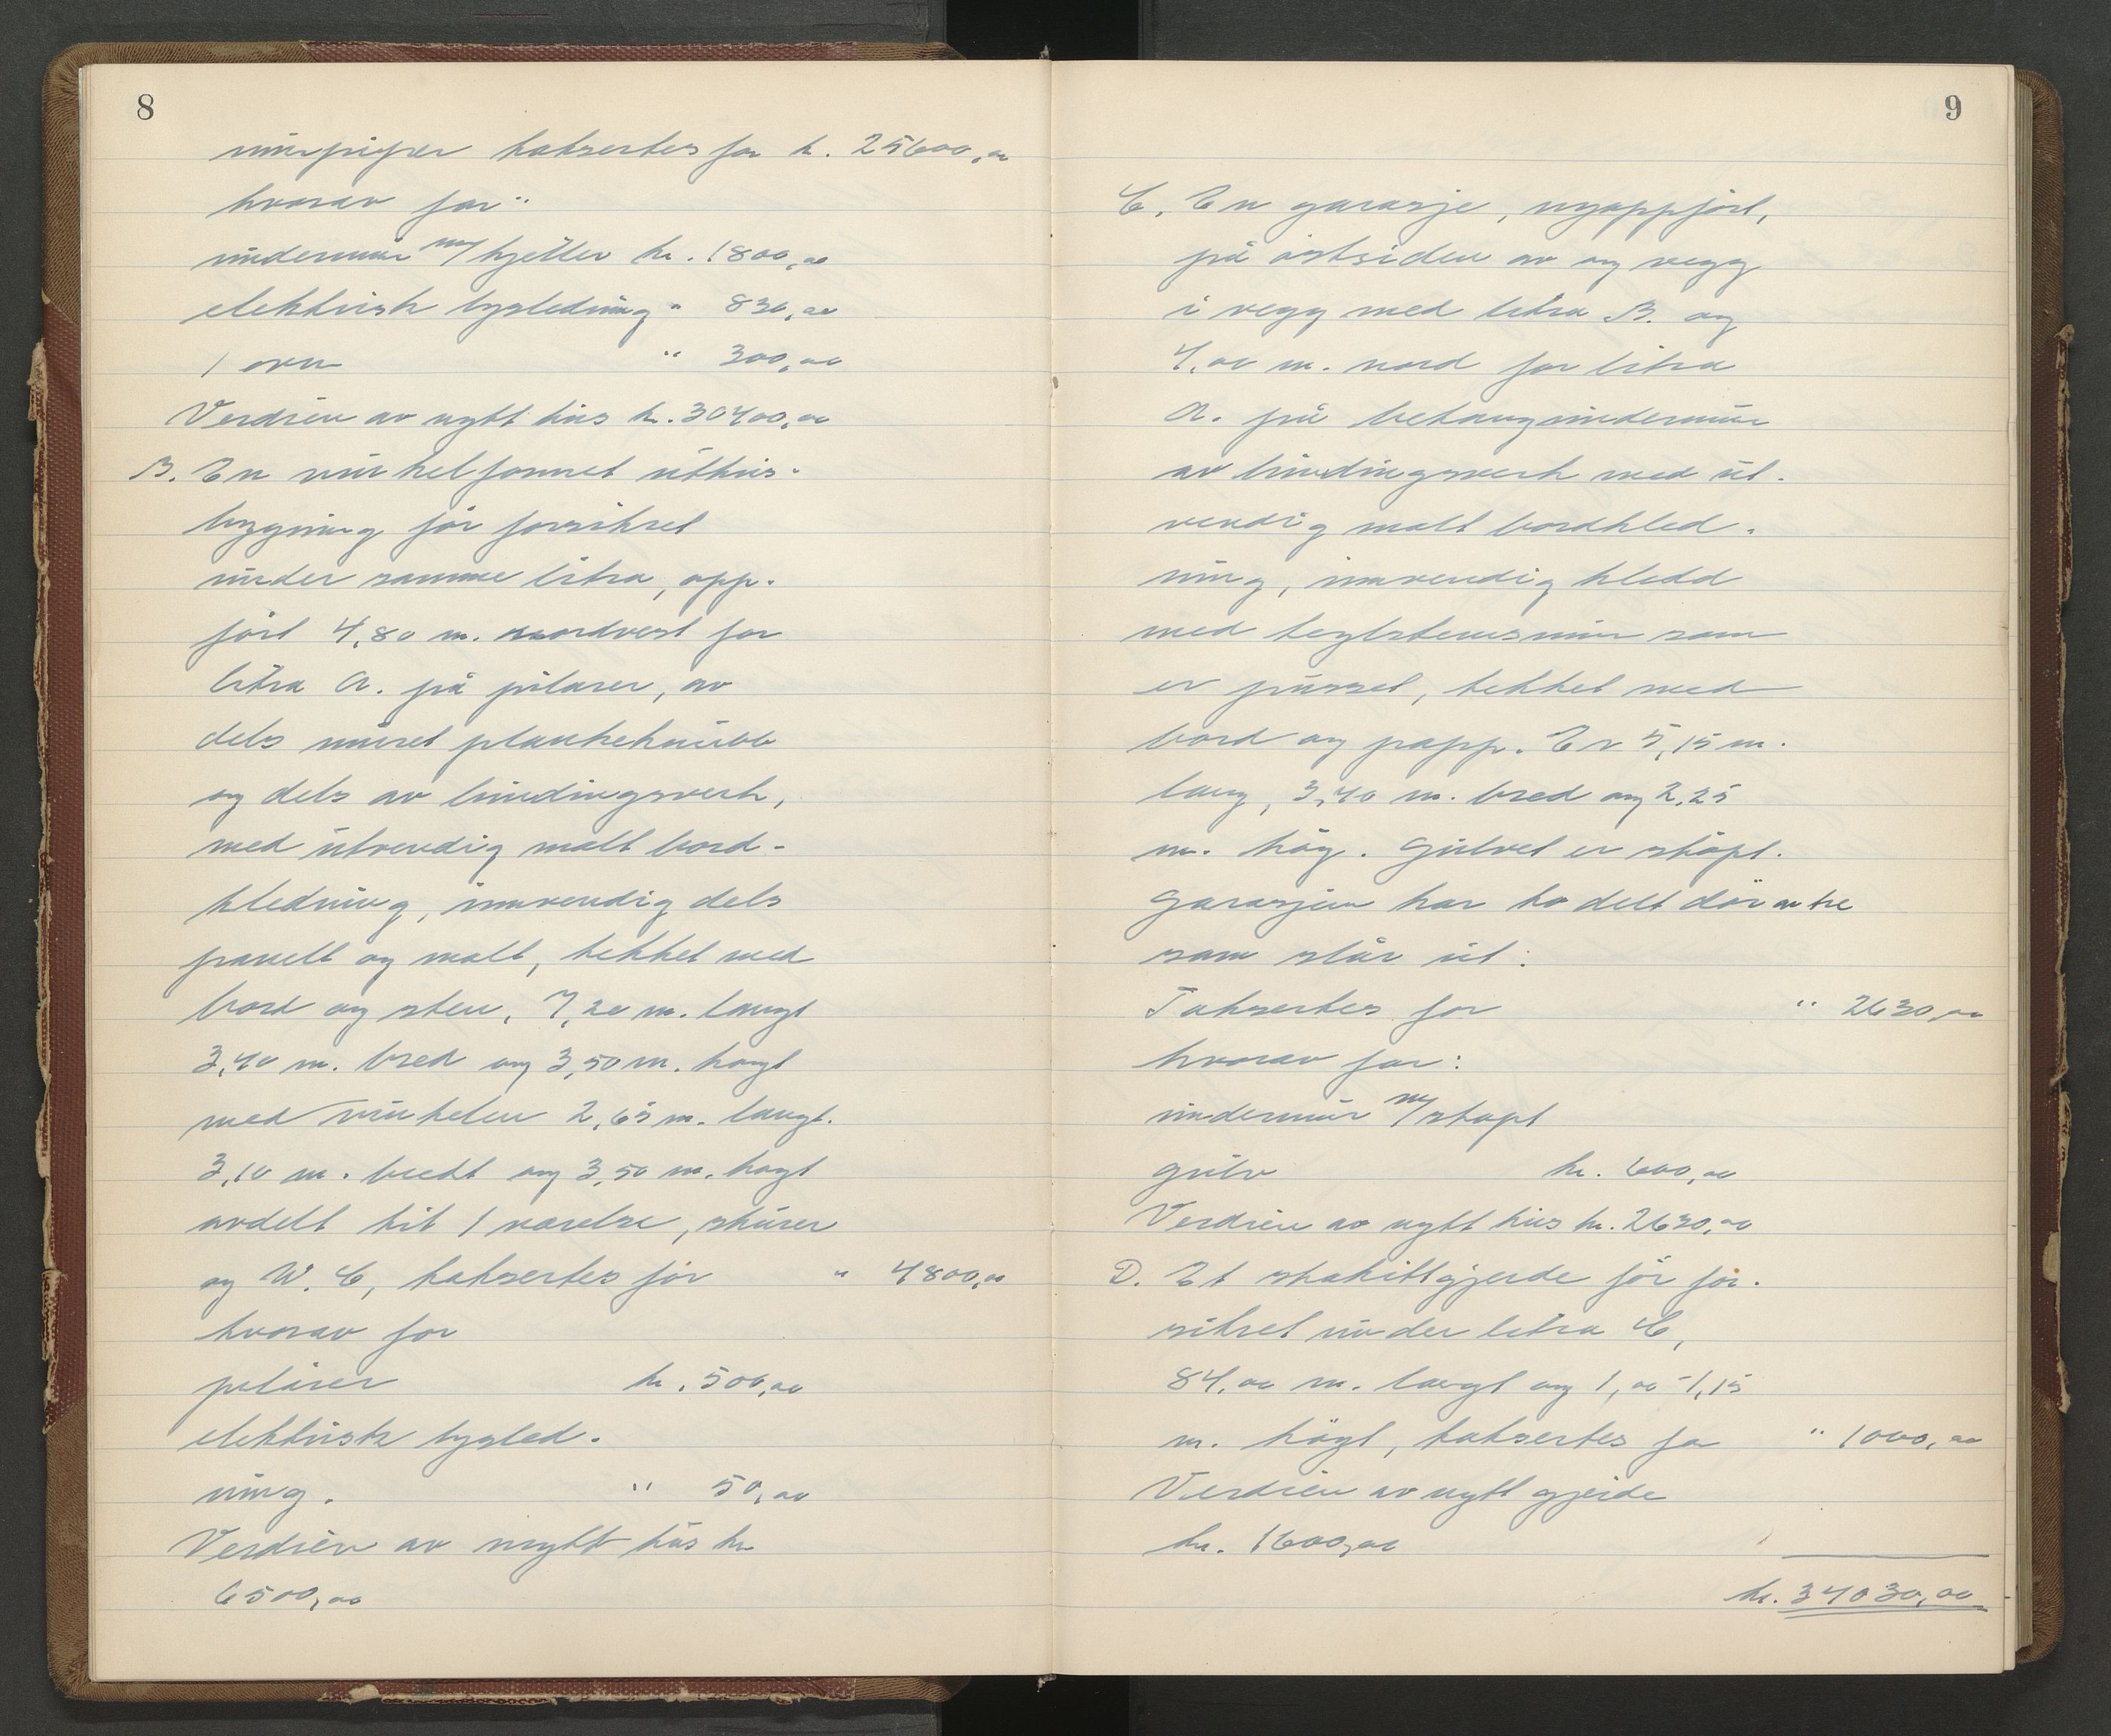 8
murpiper takseres for k. 25600,00
hvorav for:
undermur m/kjeller kr. 1800,00
elektrisk lysledning " 830,00
1 ovn " 300,00
Verdien av nytt hus kr. 30400,00
B. En vinkelformet uthus-
bygning før forsikret
under samme litra, opp-
ført 4,80 m. nordvest for
litra A. på pilarer, av
dels muret plankeknubb
og dels av bindingsverk,
med utvendig malt bord-
kledning, innvendig dels
panelt og malt, tekket med
bord og sten, 7,20 m. langt
3,40 m. bred og 3,50 m. høgt
med vinkelen 2,65 m. langt.
3,10 m. bredt og 3,50 m. høgt
avdelt til 1 værelse, skurer
og W. C, taksertes før " 4800,00
hvorav for
pilarer kr. 500,00
elektrisk lysled-
ning. " 50,00
Verdien av nytt hus kr
6500,00
9
C. En garasje, nyoppført,
på østsiden av og vegg
i vegg med litra B. og
4,00 m. nord for litra
A. på betongundermur
av bindingsverk med ut-
vendig malt bordkled-
ning, innvendig kledd
med teglstensmur som
er pusset, tekket med
bord og papp. Er 5,15 m.
lang, 3,40 m. bred og 2,25
m. høg. Gulvet er støpt.
Garasjen har todelt dør av tre
som slår ut.
Taksertes for " 2630,00
hvorav for:
undermur m/støpt
gulv kr. 600,00
Verdien av nytt hus kr. 2630,00
D. Et stakittgjerde før for-
sikret under litra C,
84,00 m. langt og 1,00-1,15
m. høgt, taksertes for " 1000,00
Verdien av nytt gjerde
kr. 1600,00
kr. 34030,00